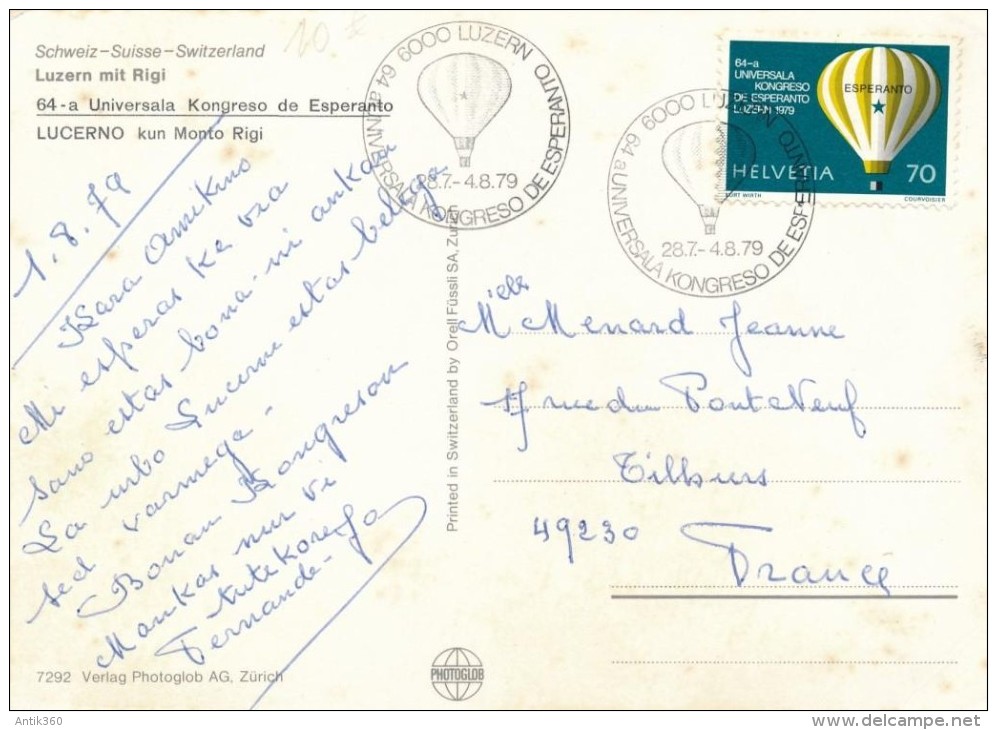 Schweiz–Suisse–Switzerland
Luzern mit Rigi
64-a Universala Kongreso de Esperanto
LUCERNO kun Monto Rigi
10
1.8.79
Kara Amikino
Mi esperas ke via
sano estas bona. mi ankaŭ
La urbo Lucerne estas belega
sed varmega
Bonan Kongreson
Mankas nur vi
tutekore
Fernande
7292 Verlag Photoglob AG, Zürich
PHOTOGLOB
Printed in Switzerland by Orell Füssli SA, Zurich
6000 LUZERN
64a UNIVERSALA KONGRESO DE ESPERANTO
28.7.-4.8.79
6000 LUZERN
64a UNIVERSALA KONGRESO DE ESPERANTO
28.7.-4.8.79
64-a
UNIVERSALA
KONGRESO
DE ESPERANTO
LUZERN 1979
ESPERANTO
HELVETIA 70
KURT WIRTH COURVOISIER
Mielle Menard Jeanne
17 rue du Pont Neuf
Tilliers
49230
France
Antik360
delcampe.net